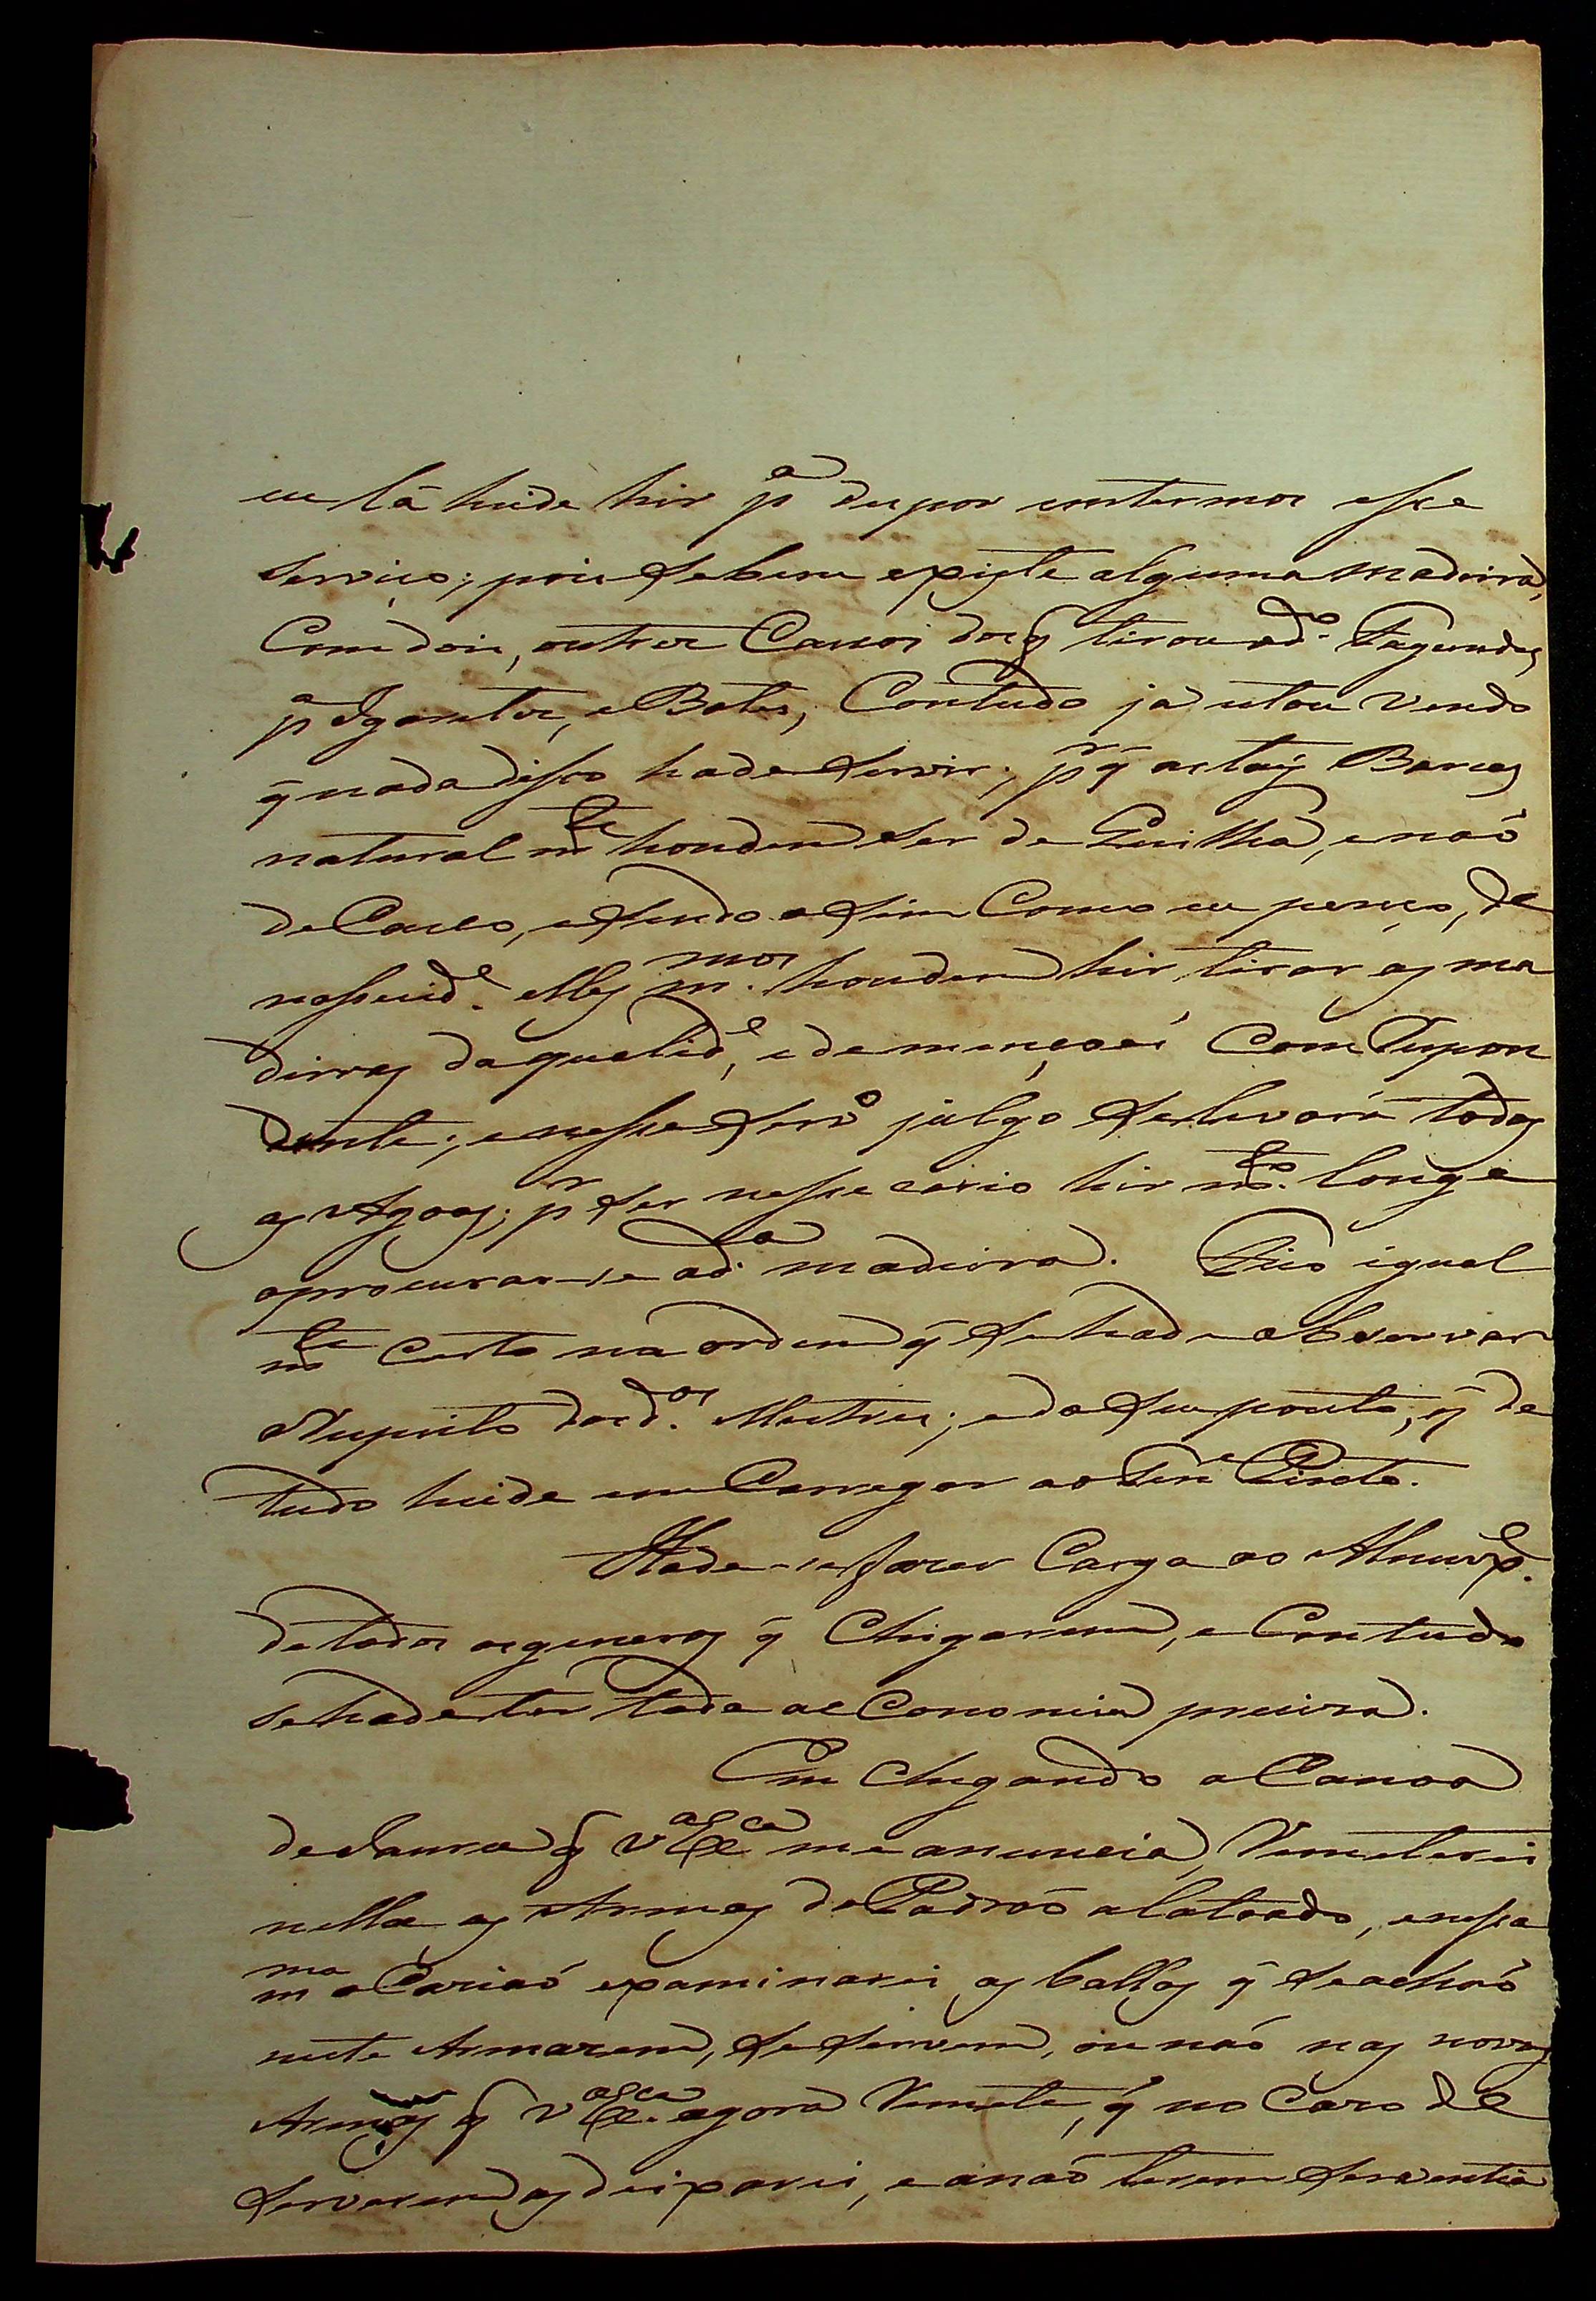 eu lá heide hir p.ª despor em termos esse
serviço; pois se bem existe alguma madeira,
Com dois, outres Cascos dos q̃ tirou o d.º Fagundes
p.ª Igarites, e Botes, Contudo já estou vendo
q̃ nada disso hade servir; p.r q̃ as taes Barcas
natural m.te houdem ser de Quilha, e naõ
de Casco, e sendo assim Como eu penso, de
nessecid.e elles m.mos houdem hir tirar as ma
deiras daquelid.e, e demençoés Corres pon
dente; e nesse serv.º julgo se levará todas
as Agoas; p.r ser nessecario hir m.to longe
aprocurar-se a d.ª madeira. Fico igual
m.te certo na ordem q̃ se hade observar
a respeito dos d.os Mestres; e do seu ponto, q̃ de
tudo heide em Carregar ao Ten.e Pinto.
Hade-se fazer Carga ao Almox.e
de todos os generos q̃ Chegarem, e Com tudo
se hade ter toda a e Conomia preciza.
Em Chegando a Canoa
de q̃ V.ª Ex.ca me anuncia, Remeterei
nella as Armas do Padraõ alatoado, e nessa
m.ma ocaziaõ examinarei as ballas q̃ se achaõ
neste Armazem, se servem, ou naõ nas novas
Armas q̃ V.ª Ex.ca agora Remete, q̃ no Cazo de
servirem as deixarei, e a naõ terem serventia